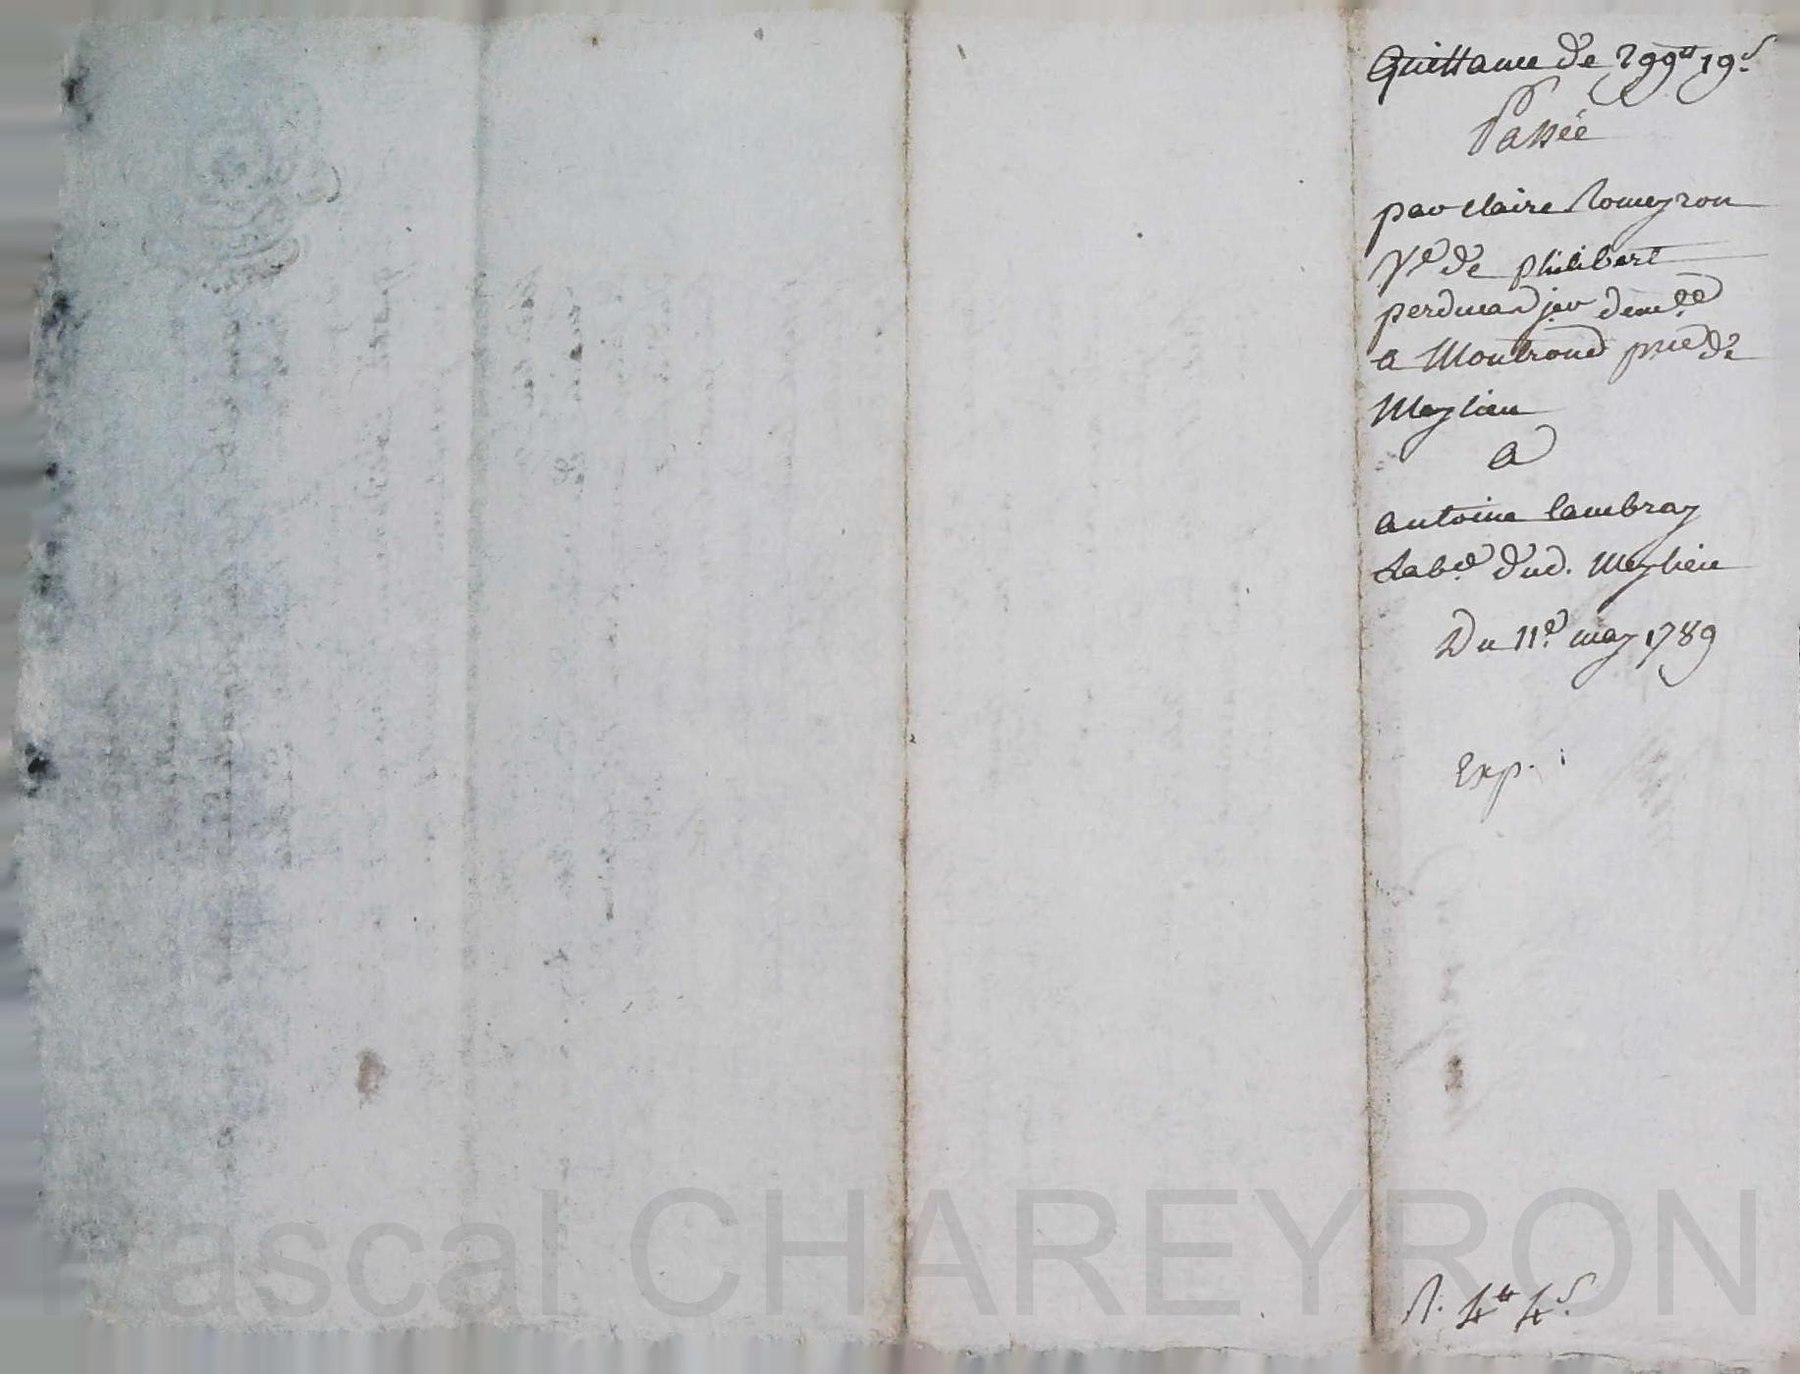 Quittance de 299ᵗᵗ 19ˢ
Passée
par Claire Romeyron
Vᵉ de philibert
a Montrond psse de
Meylieu
a
antoine Cambray
Labʳ dud. Meylieu
Du 11ᵉ may 1789
Exp.
R. 4ᵗᵗ 4ˢ.
Pascal CHAREYRON